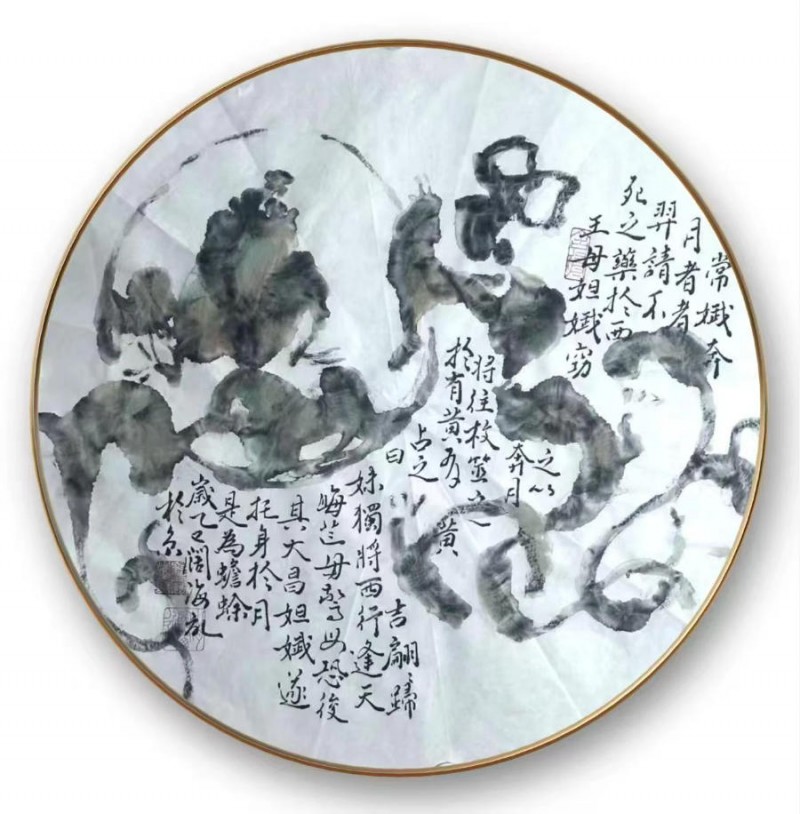 常娥奔
月者者
羿請不
死之藥於西
王母妲娥窃
之以
奔月
將往枚筮之
於有黃有
黃
占之
曰
吉翩歸
妹獨將西行逢天
晦芒毋驚毋恐後
其大昌妲娥遂
托身於月
是為蟾蜍
歲乙巳闊海
於京